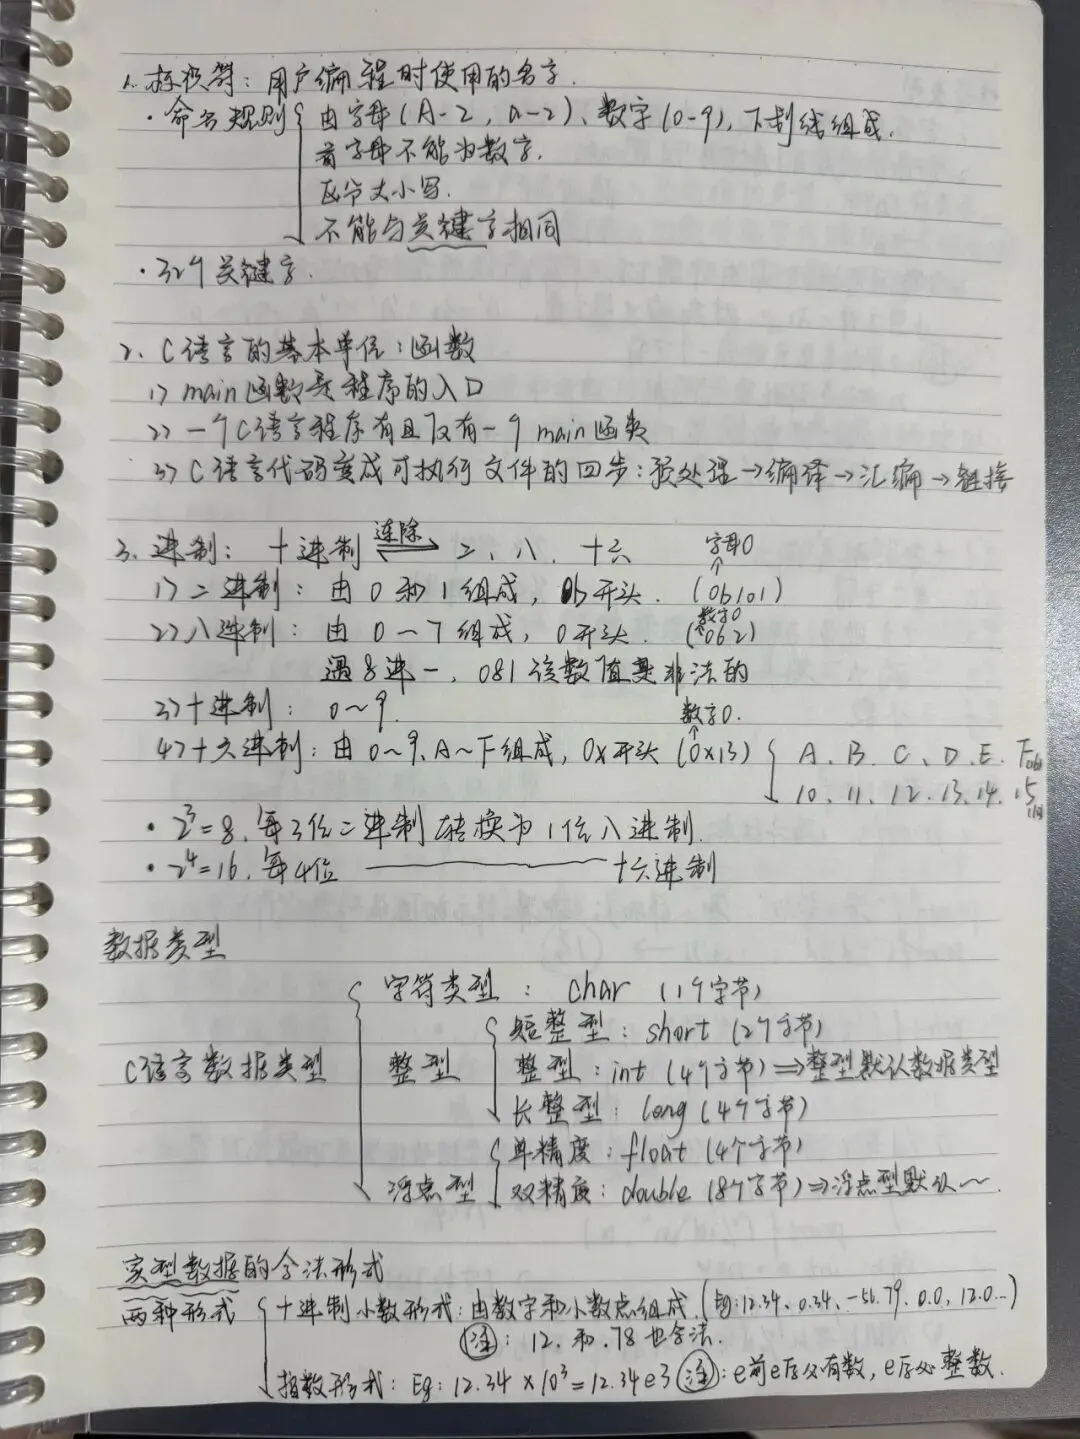 1. 标识符：用户编程时使用的名字.
·命名规则{ 由字母(A-Z, a-z)、数字(0-9), 下划线组成.
首字母不能为数字.
区分大小写.
不能与关键字相同
·32个关键字.
2、C语言的基本单位：函数
1) main函数是程序的入口
2) 一个C语言程序有且仅有一个main函数
3) C语言代码变成可执行文件的四步：预处理→编译→汇编→链接
3、进制： 十进制 ⇌ 二、八、十六
连除
字母O
↑
1) 二进制：由0和1组成，0b开头. (0b101)
数字0
2) 八进制：由0~7组成，0开头. (062)
遇8进一，081该数值是非法的
3) 十进制：0~9.
数字0.
↑
4) 十六进制：由0~9、A~F组成，0x开头 (0x13) { A、B、C、D、E、F
10、11、12、13、14、15
·2³=8，每3位二进制转换为1位八进制.
·2⁴=16，每4位 ———— 十六进制
数据类型
C语言数据类型 { 字符类型：char (1个字节)
整型 { 短整型：short (2个字节)
整型：int (4个字节) ⇒整型默认数据类型
长整型：long (4个字节)
浮点型 { 单精度：float (4个字节)
双精度：double (8个字节) ⇒浮点型默认~.
实型数据的合法形式
两种形式 { 十进制小数形式：由数字和小数点组成. (如:12.34、0.34、-56.79、0.0、12.0...)
注：12. 和 .78也合法.
指数形式：Eg：12.34×10³=12.34e3 注：e前e后必有数，e后必整数.